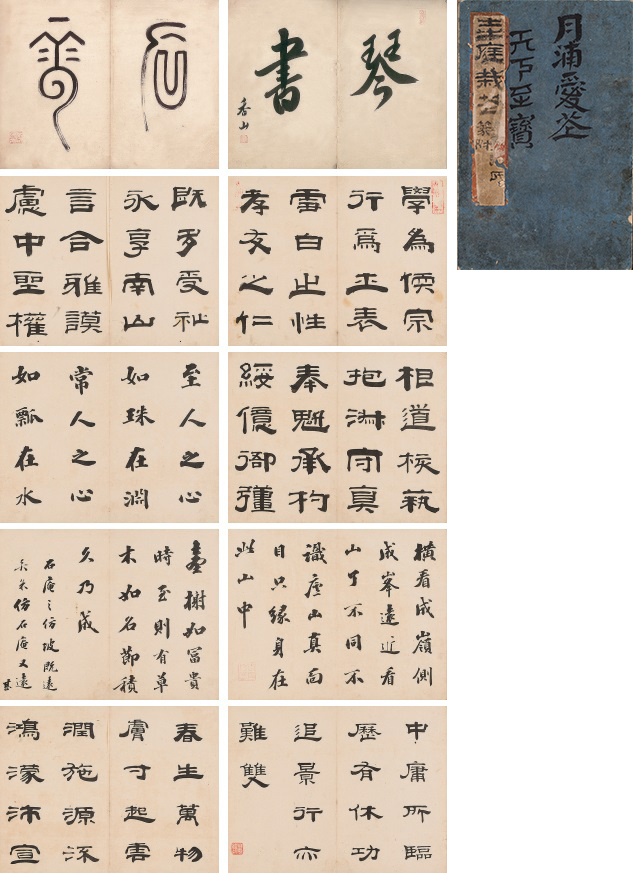 月浦愛
天下至寶
琴
書
香山
學為偄宗
行為士表
雷白止性
孝友之仁
既多受祉
永享南山
言合雅謨
慮中聖權
相道核執
抱淑守真
奉魁承杓
綏億衙彊
至人之心
如珠在淵
常人之心
如瓢在水
橫看成嶺側
成峯遠近看
山了不同不
識廬山真面
目只緣身在
此山中
臺榭如富貴
時至則有草
木如名節積
久乃成
石庵之仿坡既遠
仿石庵又遠
甚
中庸所臨
歷有休功
追景行亦
難雙
春生萬物
膚寸起雲
潤施源流
鴻濛沛宣